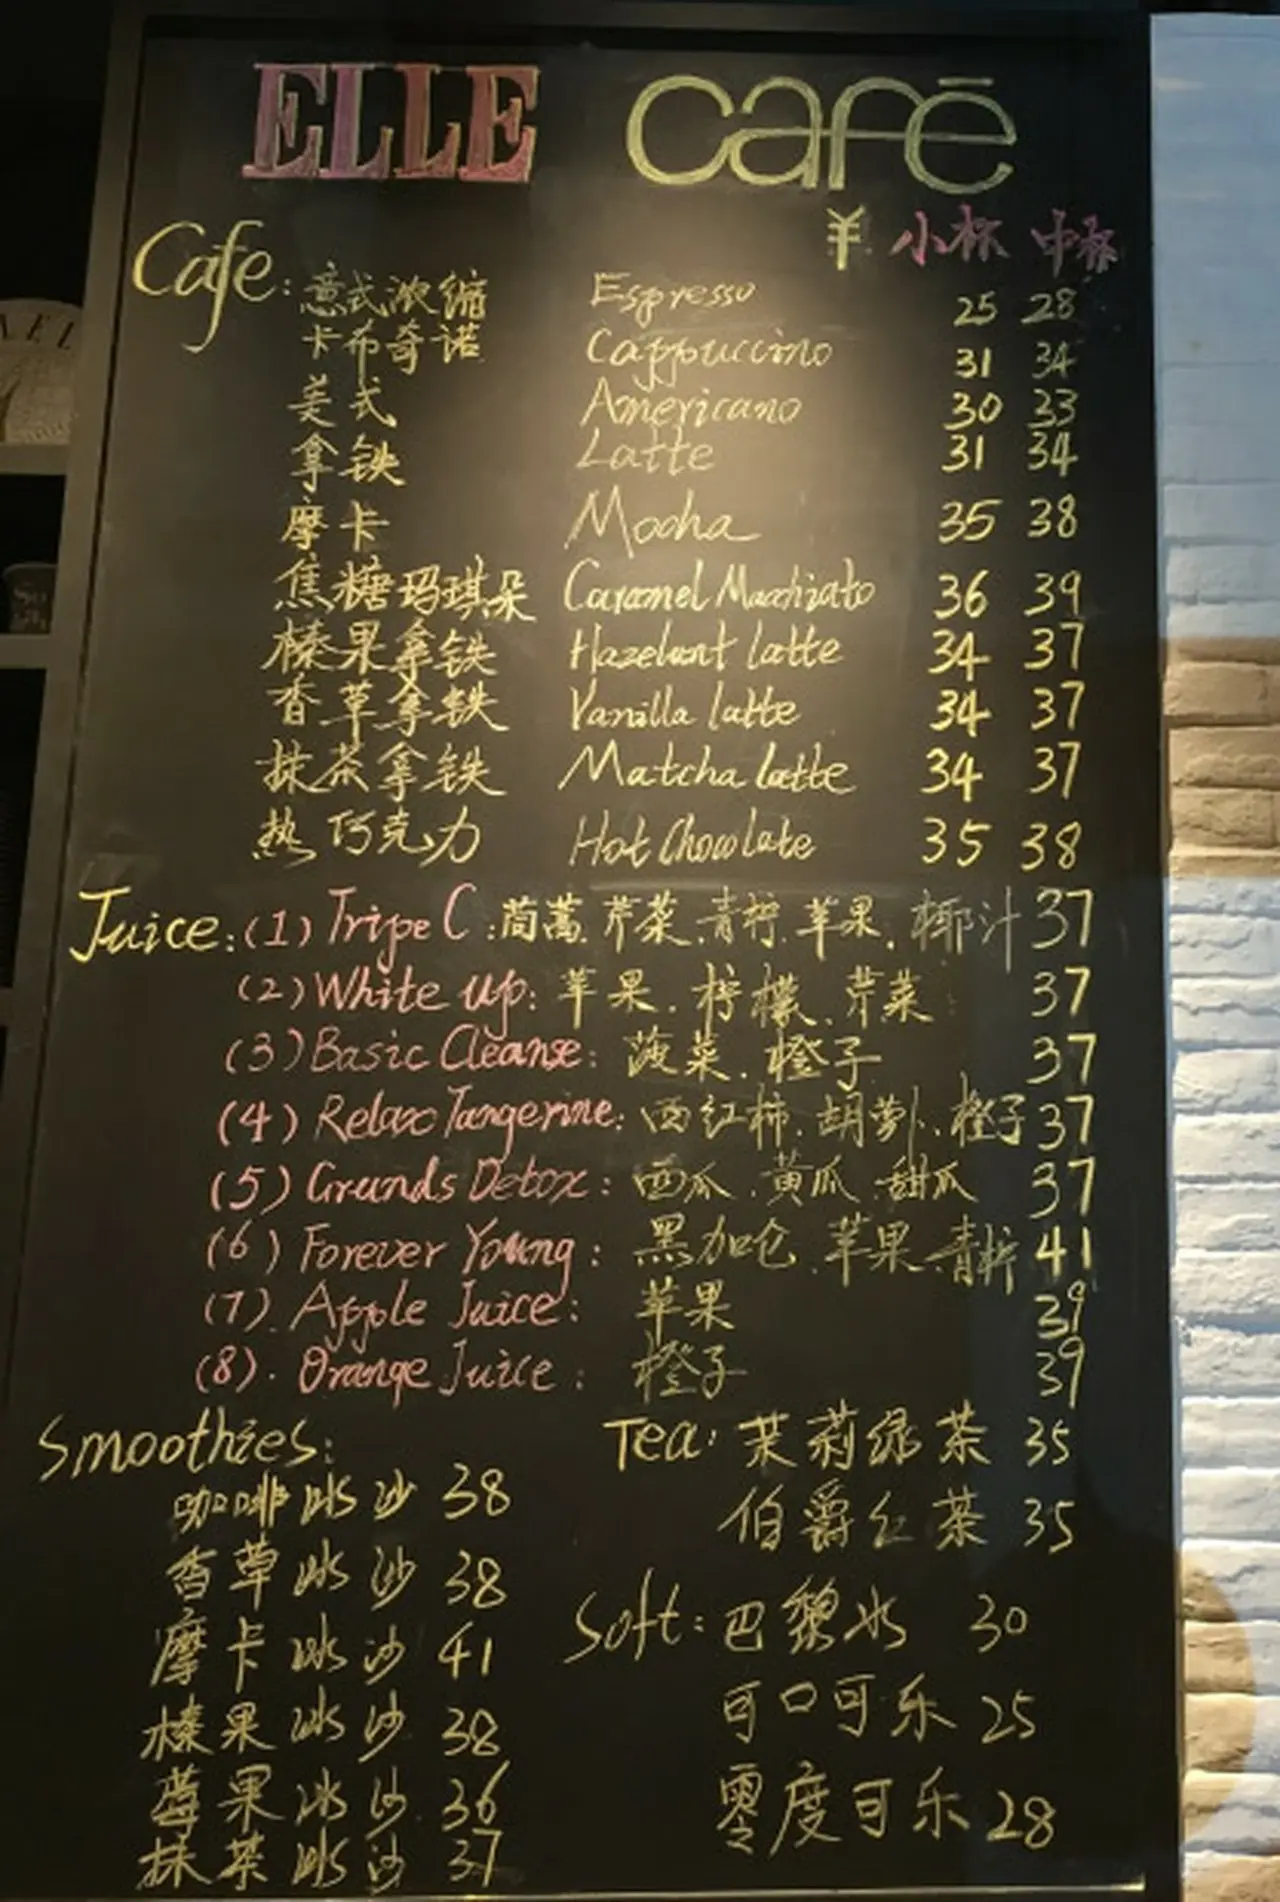 ELLE café
¥ 小杯 中杯
Cafe: 意式浓缩 Espresso 25 28
卡布奇诺 Cappuccino 31 34
美式 Americano 30 33
拿铁 Latte 31 34
摩卡 Mocha 35 38
焦糖玛琪朵 Caramel Macchiato 36 39
榛果拿铁 Hazelunt latte 34 37
香草拿铁 Vanilla latte 34 37
抹茶拿铁 Matcha latte 34 37
热巧克力 Hot Chocolate 35 38
Juice: (1) Tripe C: 茼蒿.芹菜.青柠.苹果.椰汁 37
(2) White up: 苹果.柠檬.芹菜 37
(3) Basic Cleanse: 菠菜.橙子 37
(4) Relax Tangerine: 西红柿.胡萝卜.橙子 37
(5) Grands Detox: 西瓜.黄瓜.甜瓜 37
(6) Forever Young: 黑加仑.苹果.青柠 41
(7). Apple Juice: 苹果 39
(8). Orange Juice: 橙子 39
Smoothies:
咖啡冰沙 38
香草冰沙 38
摩卡冰沙 41
榛果冰沙 38
莓果冰沙 36
抹茶冰沙 37
Tea: 茉莉绿茶 35
伯爵红茶 35
Soft: 巴黎水 30
可口可乐 25
零度可乐 28